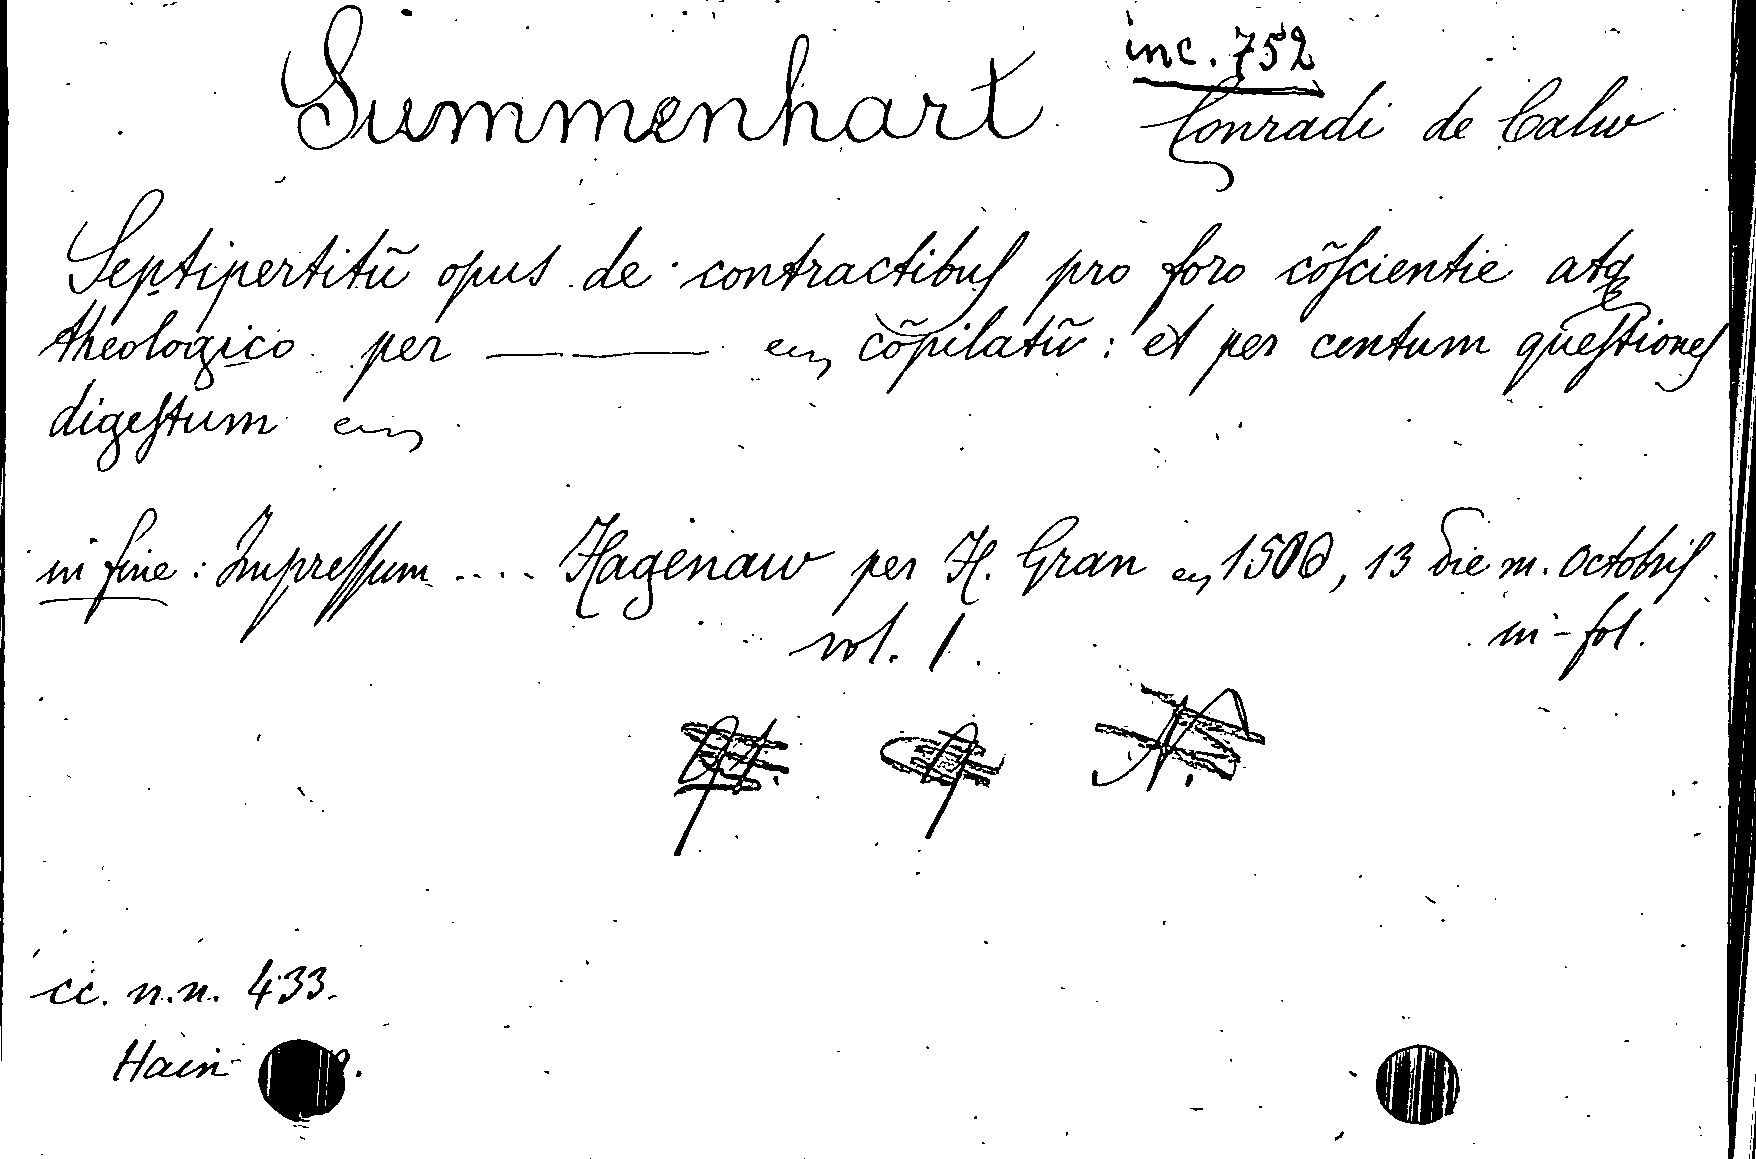 inc. 752
Summenhart Conradi de Calw
Septipertitũ opus de contractibuſ pro foro cõſcientie atq
theologico per —— ec cõpilatũ: et per centum queſtioneſ
digeſtum ec
in fine: Impreſſum .... Hagenaw per H. Gran ec 1500, 13 die m. Octobriſ.
vol. 1. in-fol.
cc. n.n. 433.
Hain